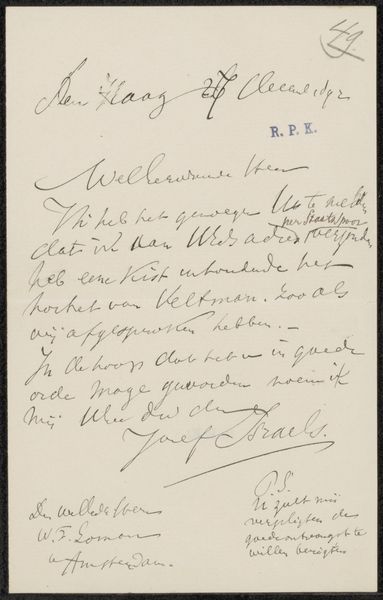 49.
Den Haag 27 Decemb 1892
R. P. K.
WelEerwaarde Heer
Ik heb het genoegen U te melden
dat ik aan UEds adres per Staatsspoor verzonden
heb eene Kist inhoudende het
portret van Veltman. Zoo als
wij afgesproken hebben. _
In de hoop dat het u in goede
orde moge geworden noem ik
mij UEw dw dr
Jozef Israels.
Den WelEdelen Heer
W. F. Loman
Amsterdam.
P.S.
U zult mij
verpligten de
goede ontvangst te
willen berigten